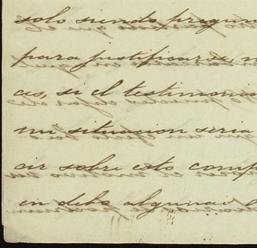 solo siendo pregun
para justificarse, n
as, si el testimonio
mi situacion seria
cir sobre esta comp
in debo algunas